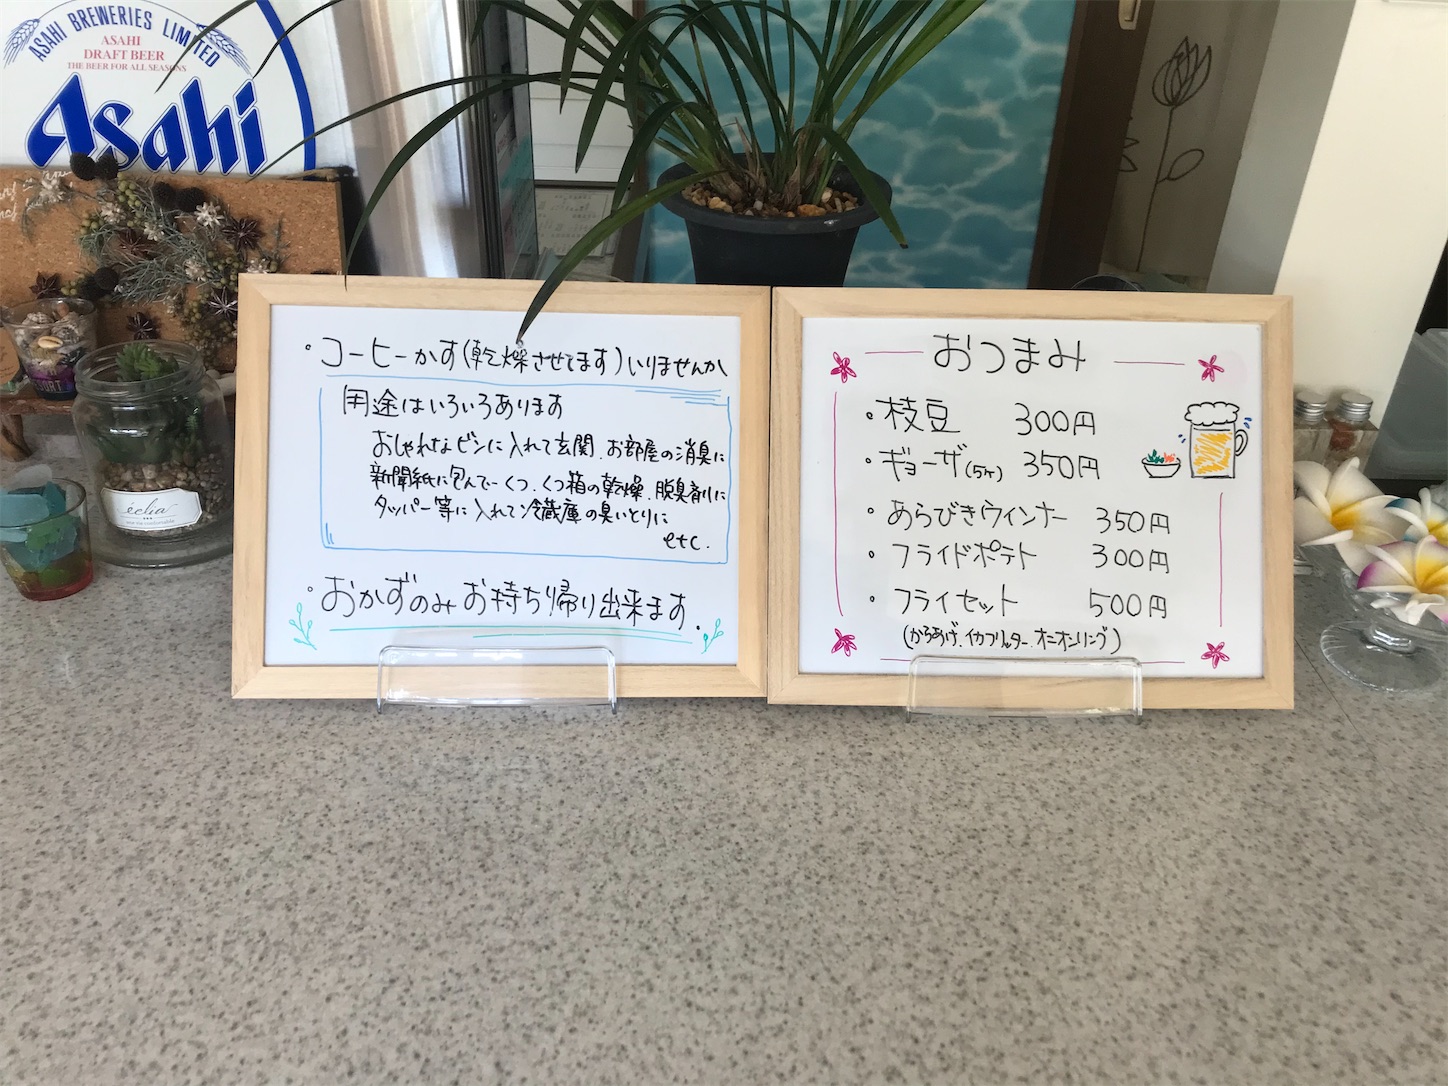 ASAHI BREWERIES LIMITED
ASAHI
DRAFT BEER
THE BEER FOR ALL SEASONS
Asahi
éclia
・コーヒーかす(乾燥させてます)いりませんか
用途はいろいろあります
おしゃれなビンに入れて玄関、お部屋の消臭に
新聞紙に包んでーくつ、くつ箱の乾燥、脱臭剤に
タッパー等に入れて冷蔵庫の臭いとりに
etc.
・おかずのみお持ち帰り出来ます.
おつまみ
・枝豆 300円
・ギョーザ(5ヶ) 350円
・あらびきウィンナー 350円
・フライドポテト 300円
・フライセット 500円
(からあげ、イカフリッター、オニオンリング)